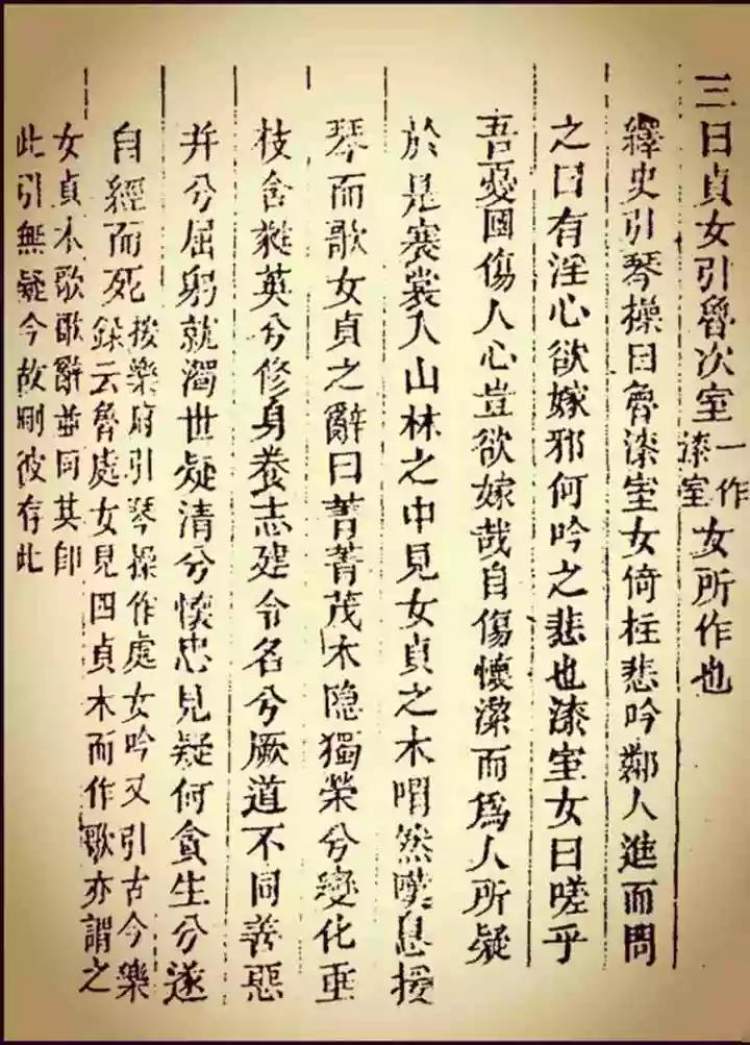 三曰貞女引魯次室一作漆室女所作也
繹史引琴操曰魯漆室女倚柱悲吟鄰人進而問
之曰有淫心欲嫁邪何吟之悲也漆室女曰嗟乎
吾憂國傷人心豈欲嫁哉自傷懷潔而爲人所疑
於是褰裳入山林之中見女貞之木喟然嘆息援
琴而歌女貞之辭曰菁菁茂木隱獨榮兮變化垂
枝含蕤英兮修身養志建令名兮厥道不同善惡
并兮屈躬就濁世疑清兮懷忠見疑何貪生兮遂
自經而死按樂府引琴操作處女吟又引古今樂
錄云魯處女見四貞木而作歌亦謂之
女貞木歌歌辭並同其卽
此引無疑今故刪彼存此